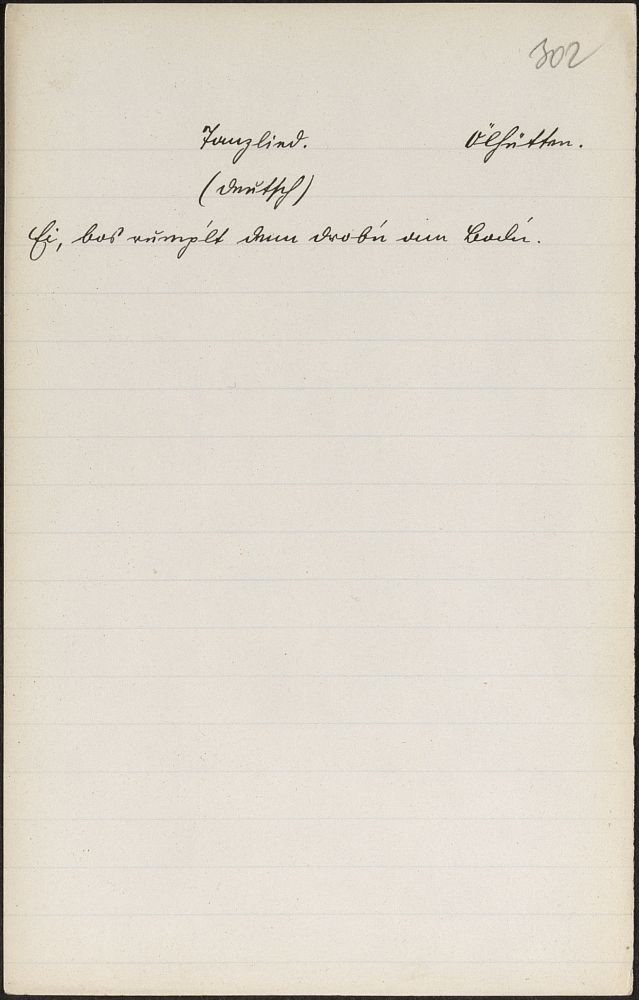 302
Tanzlied. Ölhütten.
(deutsch)
Ei, bos rumpelt denn drobn am Bodn.